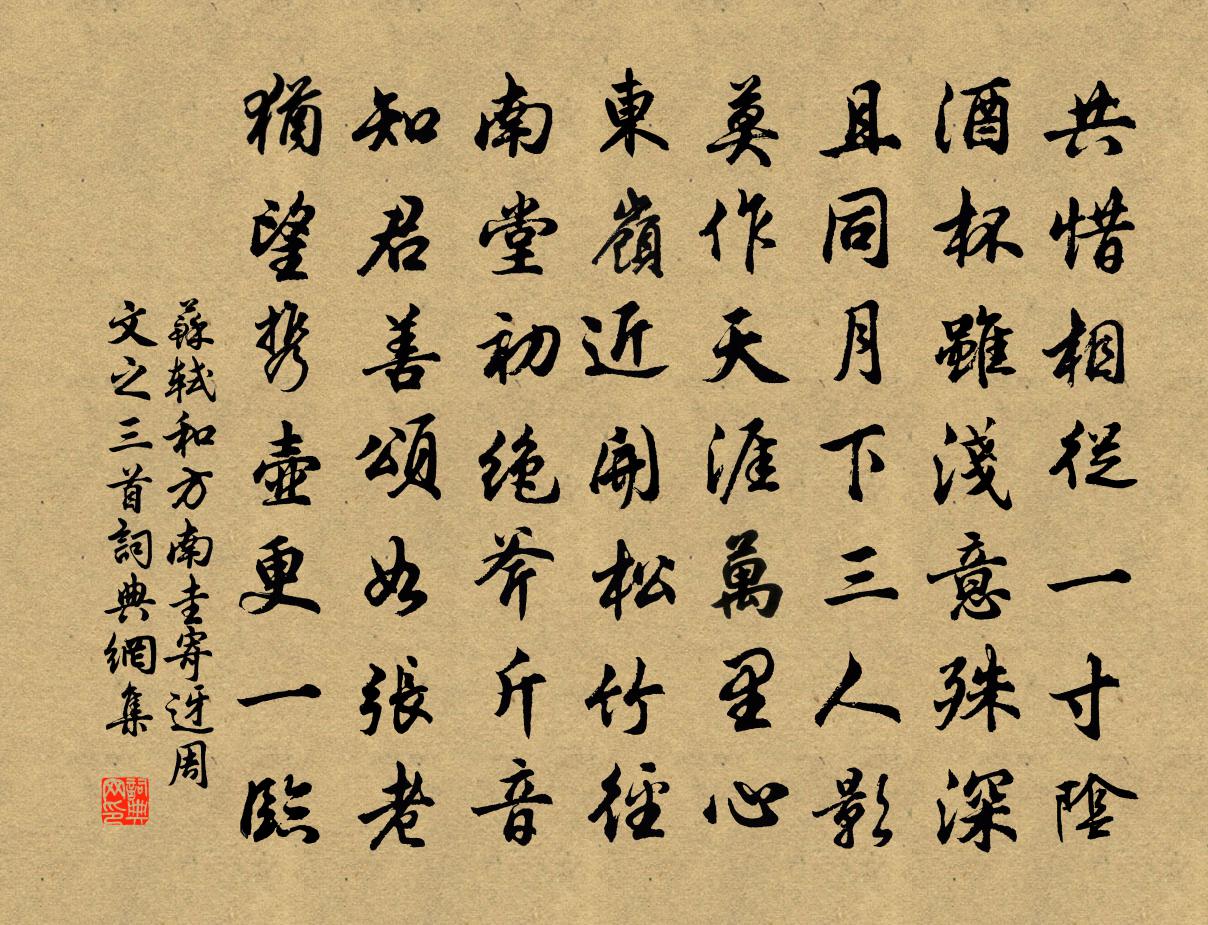 共惜相從一寸陰
酒杯雖淺意殊深
且同月下三人影
莫作天涯萬里心
東嶺近開松竹徑
南堂初絶斧斤音
知君善頌如張老
猶望携壺更一臨
蘇軾和方南圭寄迓周
文之三首詞典網集
詞典
网印